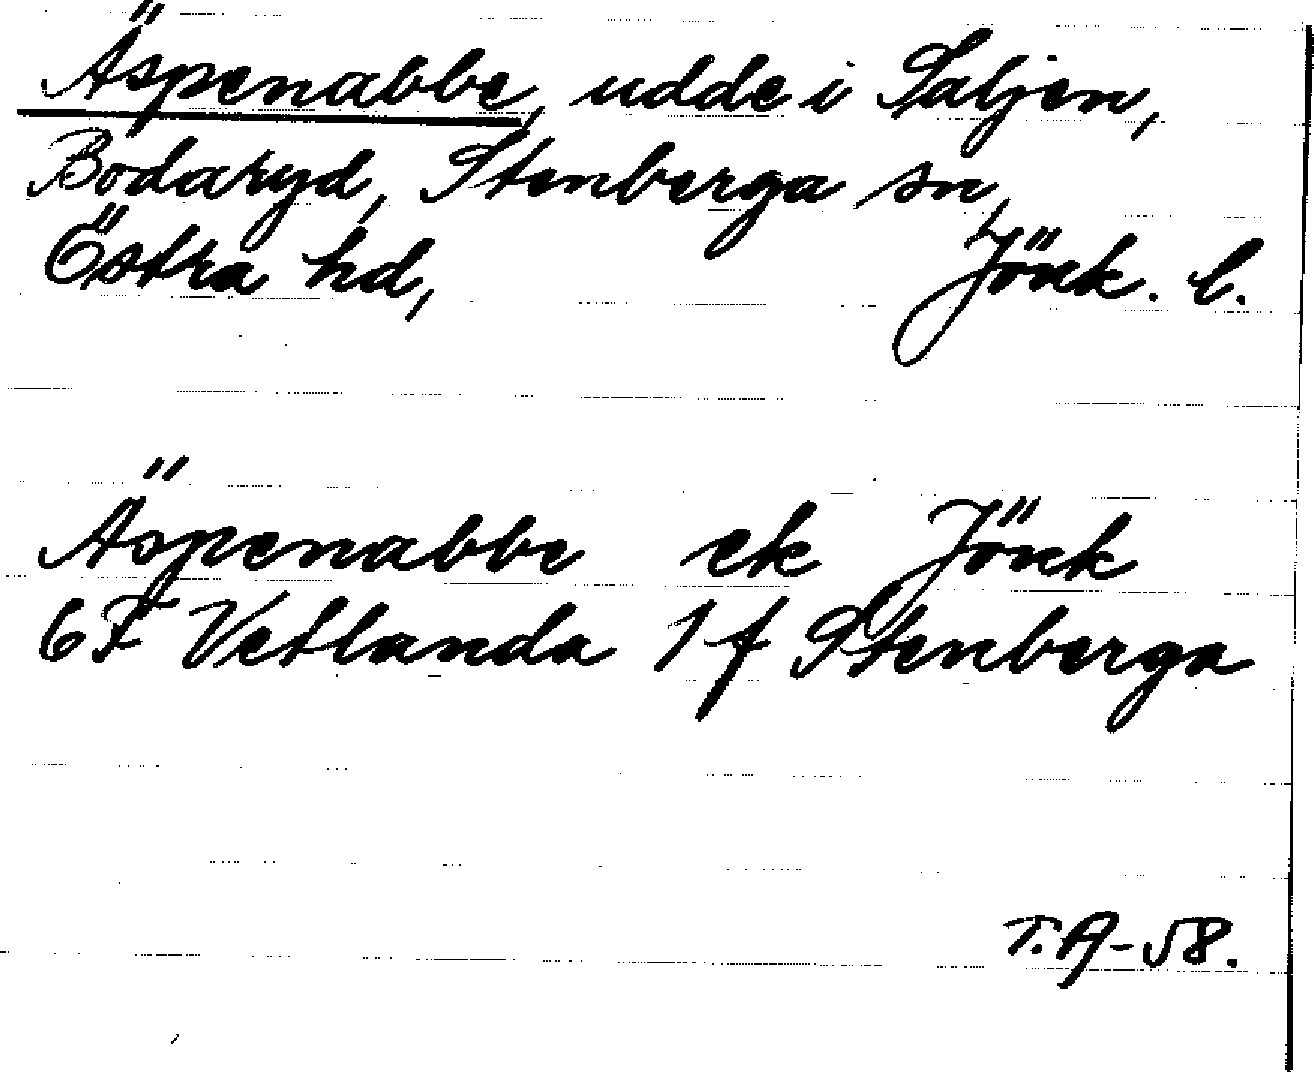 Äspenabbe, udde i Saljen,
Bodaryd, Stenberga sn,
Östra hd, Jönk. l.
Äspenabbe ek Jönk
6F Vetlanda 1f Stenberga
T.A-58.